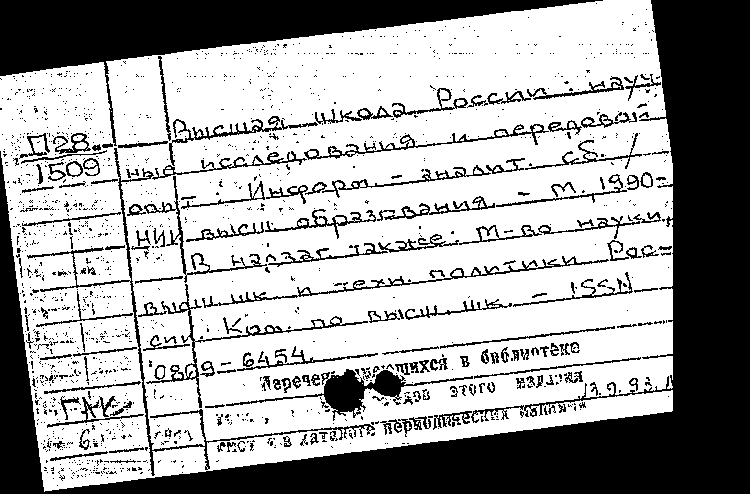 П28.
1509
Высшая школа России : науч-
ные исследования и передовой
опыт : Информ. - аналит. сб. /
НИИ высш. образования. - М., 1990-
В надзаг. также: М-во науки,
высш. шк. и техн. политики Рос-
сии. Ком. по высш. шк. - ISSN
0869-6454.
Перечень имеющихся в библиотеке
этого издания
в каталоге периодических
13.9.93.
6